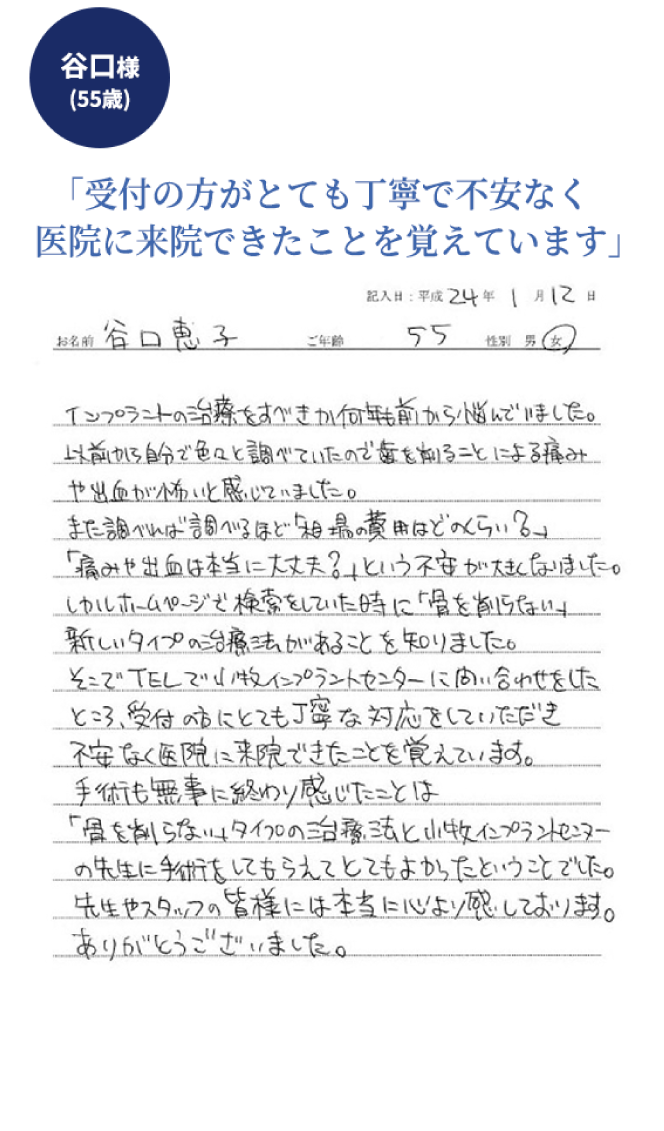 谷口様
(55歳)
「受付の方がとても丁寧で不安なく
医院に来院できたことを覚えています」
記入日：平成 24 年 1 月 12 日
お名前 谷口恵子 ご年齢 55 性別 男 女
インプラントの治療をすべきか何年も前から悩んでいました。
以前から自分で色々と調べていたので歯を削ることによる痛み
や出血が怖いと感じていました。
また調べれば調べるほど「相場の費用はどのくらい？」
「痛みや出血は本当に大丈夫？」という不安が大きくなりました。
しかしホームページで検索をしていた時に「骨を削らない」
新しいタイプの治療法があることを知りました。
そこでTELで小牧インプラントセンターに問い合わせをした
ところ、受付の方にとても丁寧な対応をしていただき
不安なく医院に来院できたことを覚えています。
手術も無事に終わり感じたことは
「骨を削らない」タイプの治療法と小牧インプラントセンター
の先生に手術をしてもらえてとてもよかったということでした。
先生やスタッフの皆様には本当に心より感しております。
ありがとうございました。